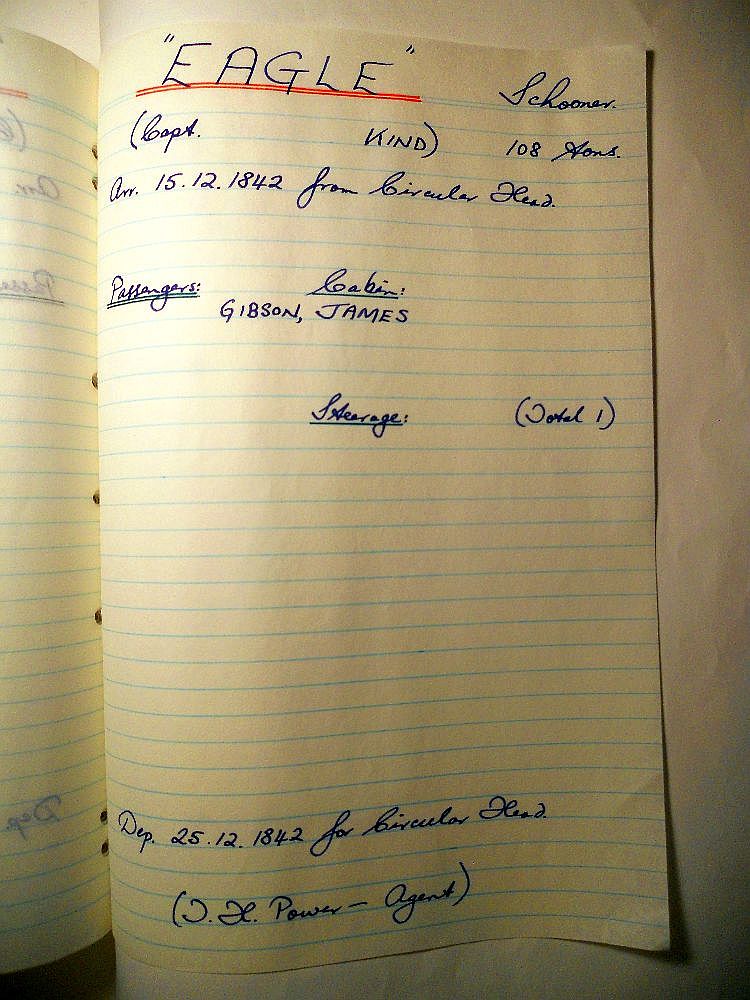 "EAGLE" Schooner.
(Capt. KIND) 108 tons.
Arr. 15.12.1842 from Circular Head.
Passengers: Cabin:
GIBSON, JAMES
Steerage: (Total 1)
Dep. 25.12.1842 for Circular Head.
(T. H. Power – Agent)